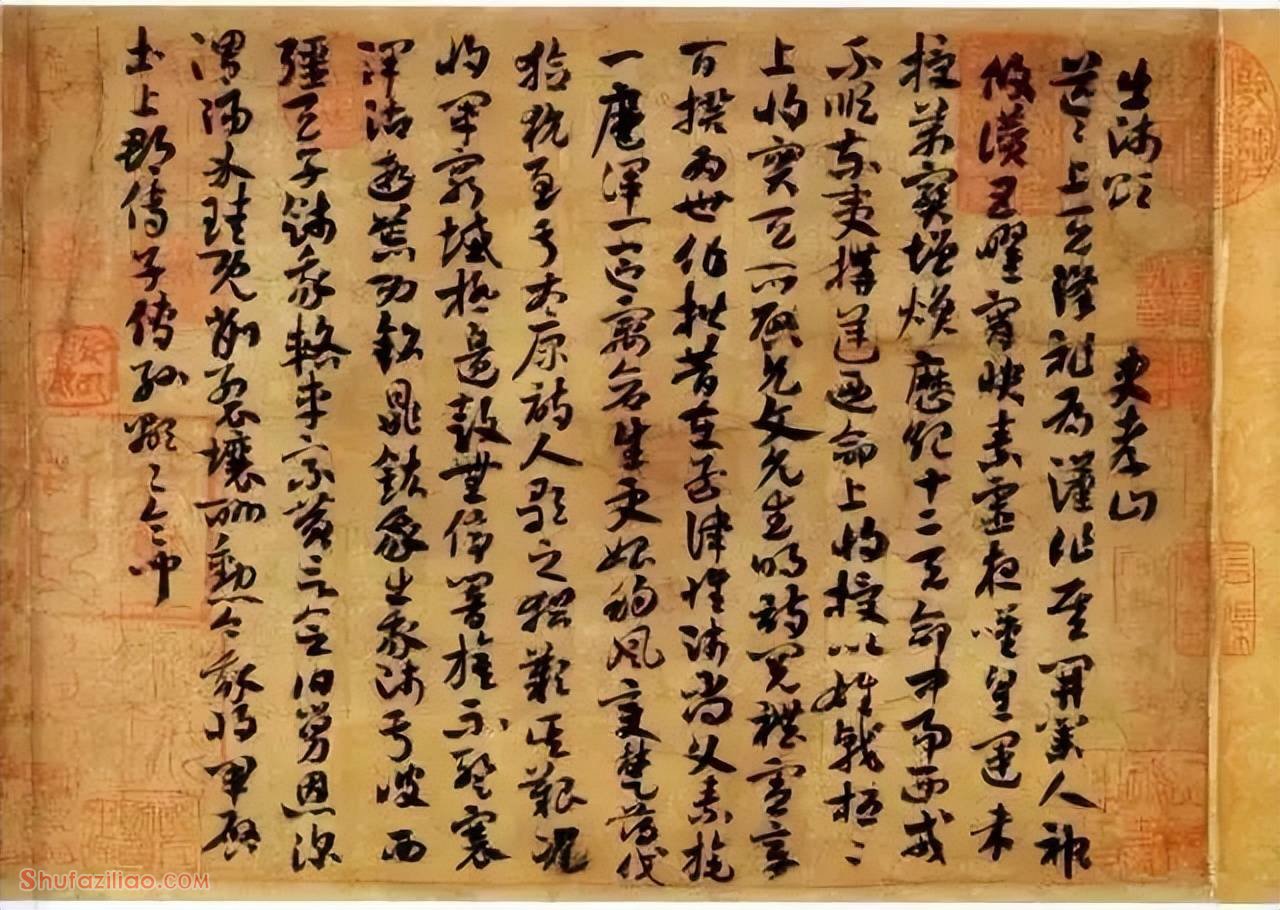 出師頌 史孝山
茫々上天降祚爲漢作基開業人神
攸讚五曜霄映素靈夜嘆皇運未
授萬寶增煥歷紀十二天命中易西戎
不順東夷構逆乃命上將授以雄戟桓々
上將實天所啓允文允武明詩閱禮憲章
百揆爲世作楷昔在孟津惟師尚父素旄
一麾渾一區寓倉生更始朔風變楚薄伐
獫狁至于太原詩人歌之猶歎其艱況
將軍窮域極邊鼓無停響旌不蹔褰
澤沾遐荒功銘鼎鉉我出我師于彼西
疆天子餞我輅車乘黃言念伯舅恩深
渭陽介珪既削裂壤酬勳今我將軍啓
土上郡傳子傳孫顯々令問
SHUFAZILIAO.COM